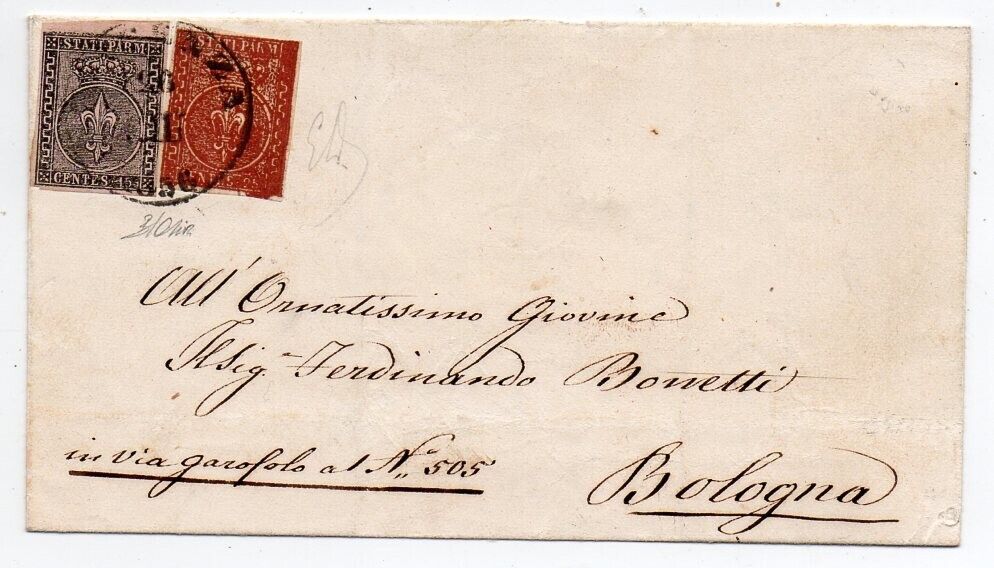 STATI PARM
CENTES. 15
STATI PARM
1856
All' Ornatissimo Giovine
Il Sig.r Ferdinando Bonetti
in via garofolo al N.º 505
Bologna